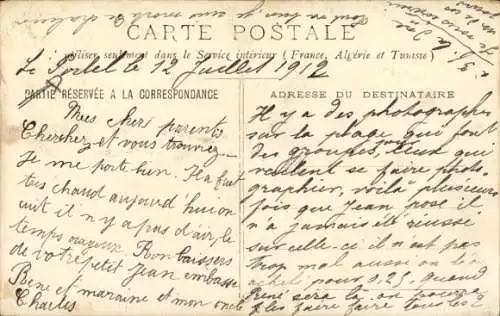 CARTE POSTALE
utiliser seulement dans le Service intérieur (France, Algérie et Tunisie)
Le Portel le 12 Juillet 1912
PARTIE RÉSERVÉE A LA CORRESPONDANCE
Mes chers parents
Cherchez et vous trouvez
Je me porte bien. Il a fait
très chaud aujourd'hui on
cuit il n'y a pas d'air, le
temps Bon baisers
de votre petit Jean embrasse
Rene et maraine et mon oncle
Charles
ADRESSE DU DESTINATAIRE
Il y a des photographes
sur la plage qui font
des groupes, pour ceux qui
veulent se faire photo-
graphier, voilà plusieurs
fois que Jean pose il
n'a jamais été réussi
sur celle-ci il n'est pas
trop mal aussi on l'a
acheté pour 0,25. Quand
René sera là on pourra
les faire faire tous les